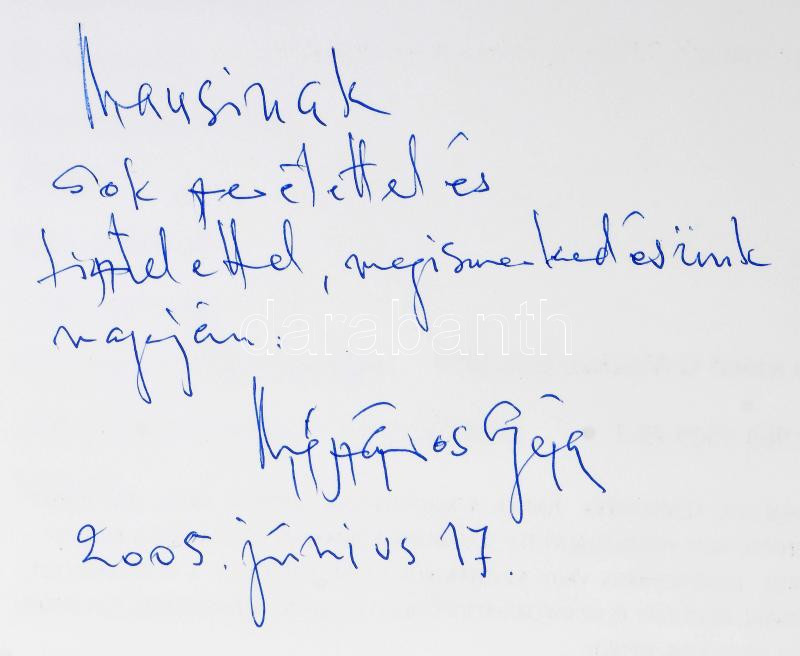 Mausinak
sok szeretettel és
tisztelettel, megismerkedésünk
napján:
Mészáros Géza
2005. június 17.
darabanth